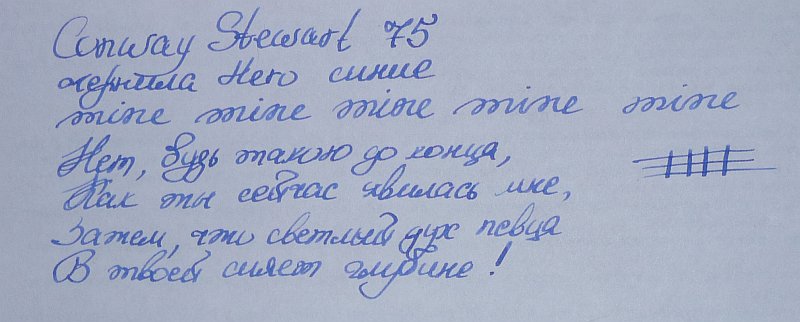 Conway Stewart 75
чернила Hero синие
mine mine mine mine mine
Нет, будь такою до конца,
Как ты сейчас явилась мне,
Затем, что светлый дух певца
В твоей сияет глубине!